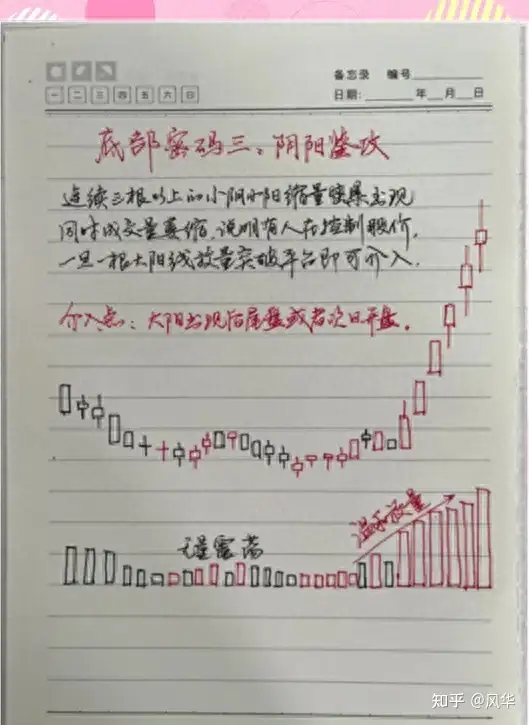 备忘录 编号
一 二 三 四 五 六 日
日期: 年 月 日
底部密码三:阴阳鉴攻
连续三根以上的小阴小阳缩量密集出现
同时成交量萎缩,说明有人在控制股价,
一旦一根大阳线放量突破平台即可介入.
介入点:大阳出现后尾盘或者次日开盘.
温和放量
无量震荡
知乎 @风华